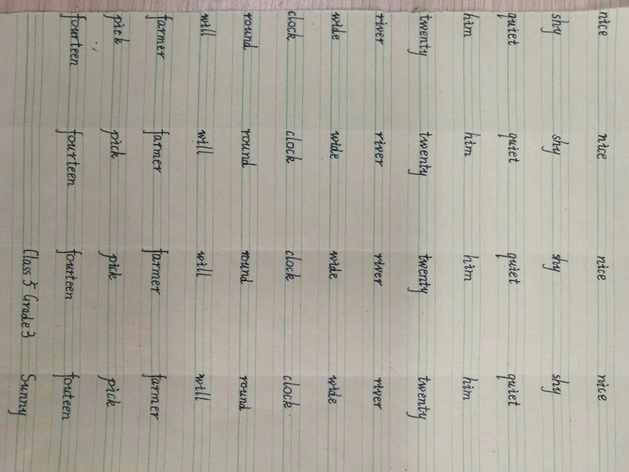 nice nice nice nice
shy shy shy shy
quiet quiet quiet quiet
him him him him
twenty twenty twenty twenty
river river river river
wide wide wide wide
clock clock clock clock
round round round round
will will will will
farmer farmer farmer farmer
pick pick pick pick
fourteen fourteen fourteen fouteen
Class 5 Grade 3 Sunny